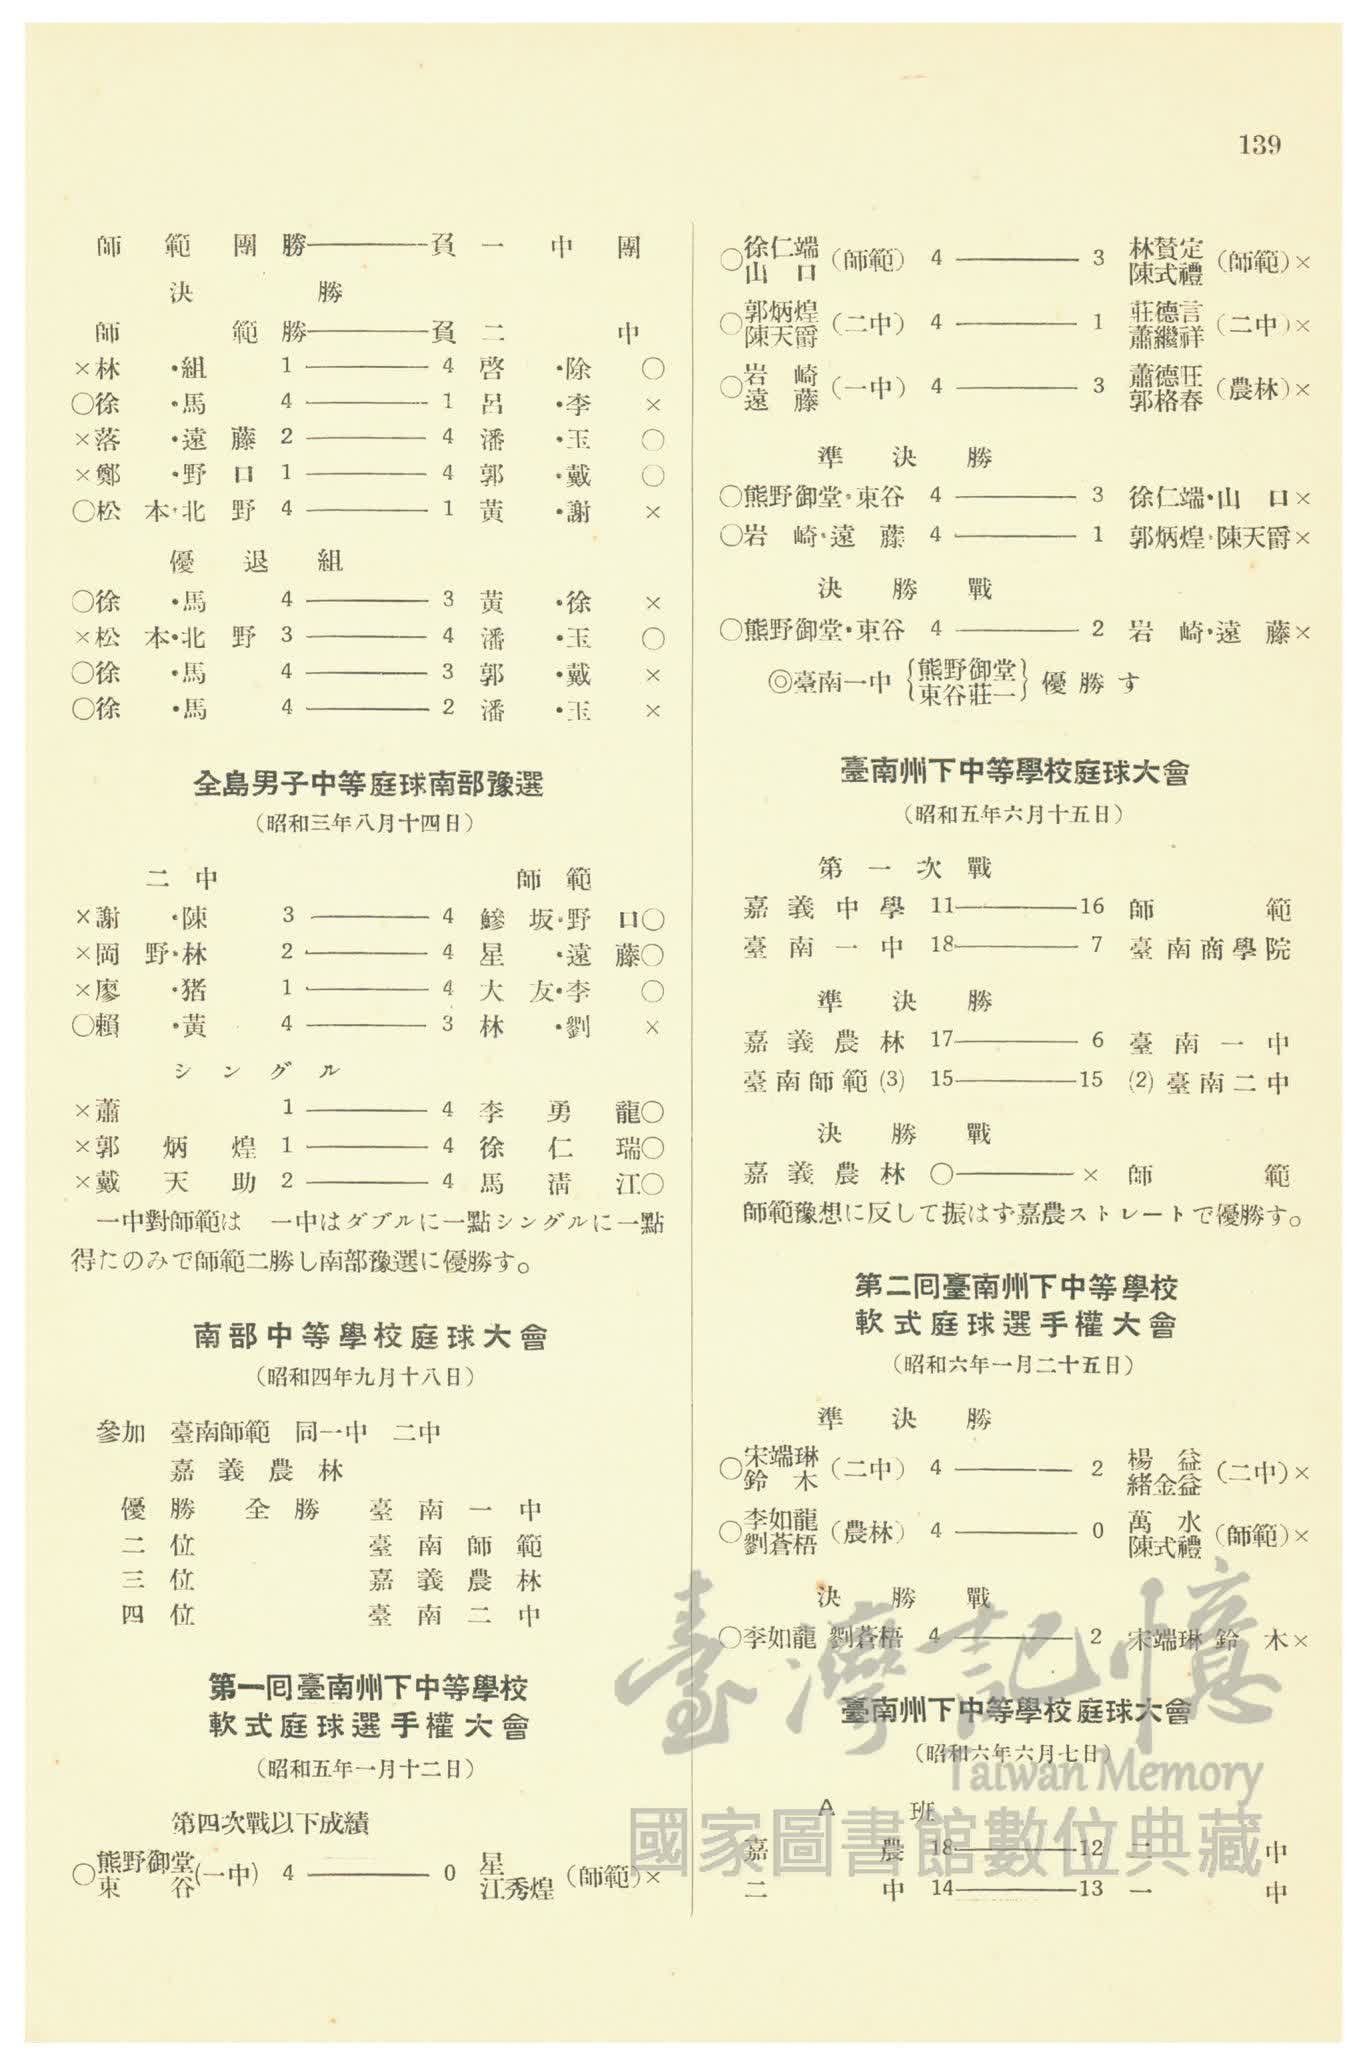 139
師範團 勝———負 一中團
決勝
師範 勝———負 二中
×林・組 1———4 啓・除○
○徐・馬 4———1 呂・李×
×落・遠藤 2———4 潘・玉○
×鄭・野口 1———4 郭・戴○
○松本・北野 4———1 黃・謝×
優退組
○徐・馬 4———3 黃・徐×
×松本・北野 3———4 潘・玉○
○徐・馬 4———3 郭・戴×
○徐・馬 4———2 潘・玉×
全島男子中等庭球南部豫選
(昭和三年八月十四日)
二中 師範
×謝・陳 3———4 鰺坂・野口○
×岡野・林 2———4 星・遠藤○
×廖・猪 1———4 大友・李○
○賴・黃 4———3 林・劉×
シングル
×蕭 1———4 李勇龍○
×郭炳煌 1———4 徐仁瑞○
×戴天助 2———4 馬淸江○
一中對師範は 一中はダブルに一點シングルに一點
得たのみで師範二勝し南部豫選に優勝す。
南部中等學校庭球大會
(昭和四年九月十八日)
參加 臺南師範 同一中 二中
嘉義農林
優勝 全勝 臺南一中
二位 臺南師範
三位 嘉義農林
四位 臺南二中
第一囘臺南州下中等學校
軟式庭球選手權大會
(昭和五年一月十二日)
第四次戰以下成績
○熊野御堂 東谷 (一中) 4———0 星 江秀煌 (師範)×
○徐仁端 山口 (師範) 4———3 林賛定 陳式禮 (師範)×
○郭炳煌 陳天爵 (二中) 4———1 莊德言 蕭繼祥 (二中)×
○岩崎 遠藤 (一中) 4———3 蕭德旺 郭格春 (農林)×
準決勝
○熊野御堂・東谷 4———3 徐仁端・山口×
○岩崎・遠藤 4———1 郭炳煌・陳天爵×
決勝戰
○熊野御堂・東谷 4———2 岩崎・遠藤×
◎臺南一中 {熊野御堂 東谷莊一} 優勝す
臺南州下中等學校庭球大會
(昭和五年六月十五日)
第一次戰
嘉義中學 11———16 師範
臺南一中 18———7 臺南商學院
準決勝
嘉義農林 17———6 臺南一中
臺南師範(3) 15———15 (2)臺南二中
決勝戰
嘉義農林 ○———× 師範
師範豫想に反して振はず嘉農ストレートで優勝す。
第二囘臺南州下中等學校
軟式庭球選手權大會
(昭和六年一月二十五日)
準決勝
○宋端琳 鈴木 (二中) 4———2 楊益 緖金益 (二中)×
○李如龍 劉蒼梧 (農林) 4———0 萬水 陳式禮 (師範)×
決勝戰
○李如龍 劉蒼梧 4———2 宋端琳 鈴木×
臺南州下中等學校庭球大會
(昭和六年六月七日)
A 班
嘉農 18———12 二中
二中 14———13 一中
臺灣記憶
Taiwan Memory
國家圖書館數位典藏